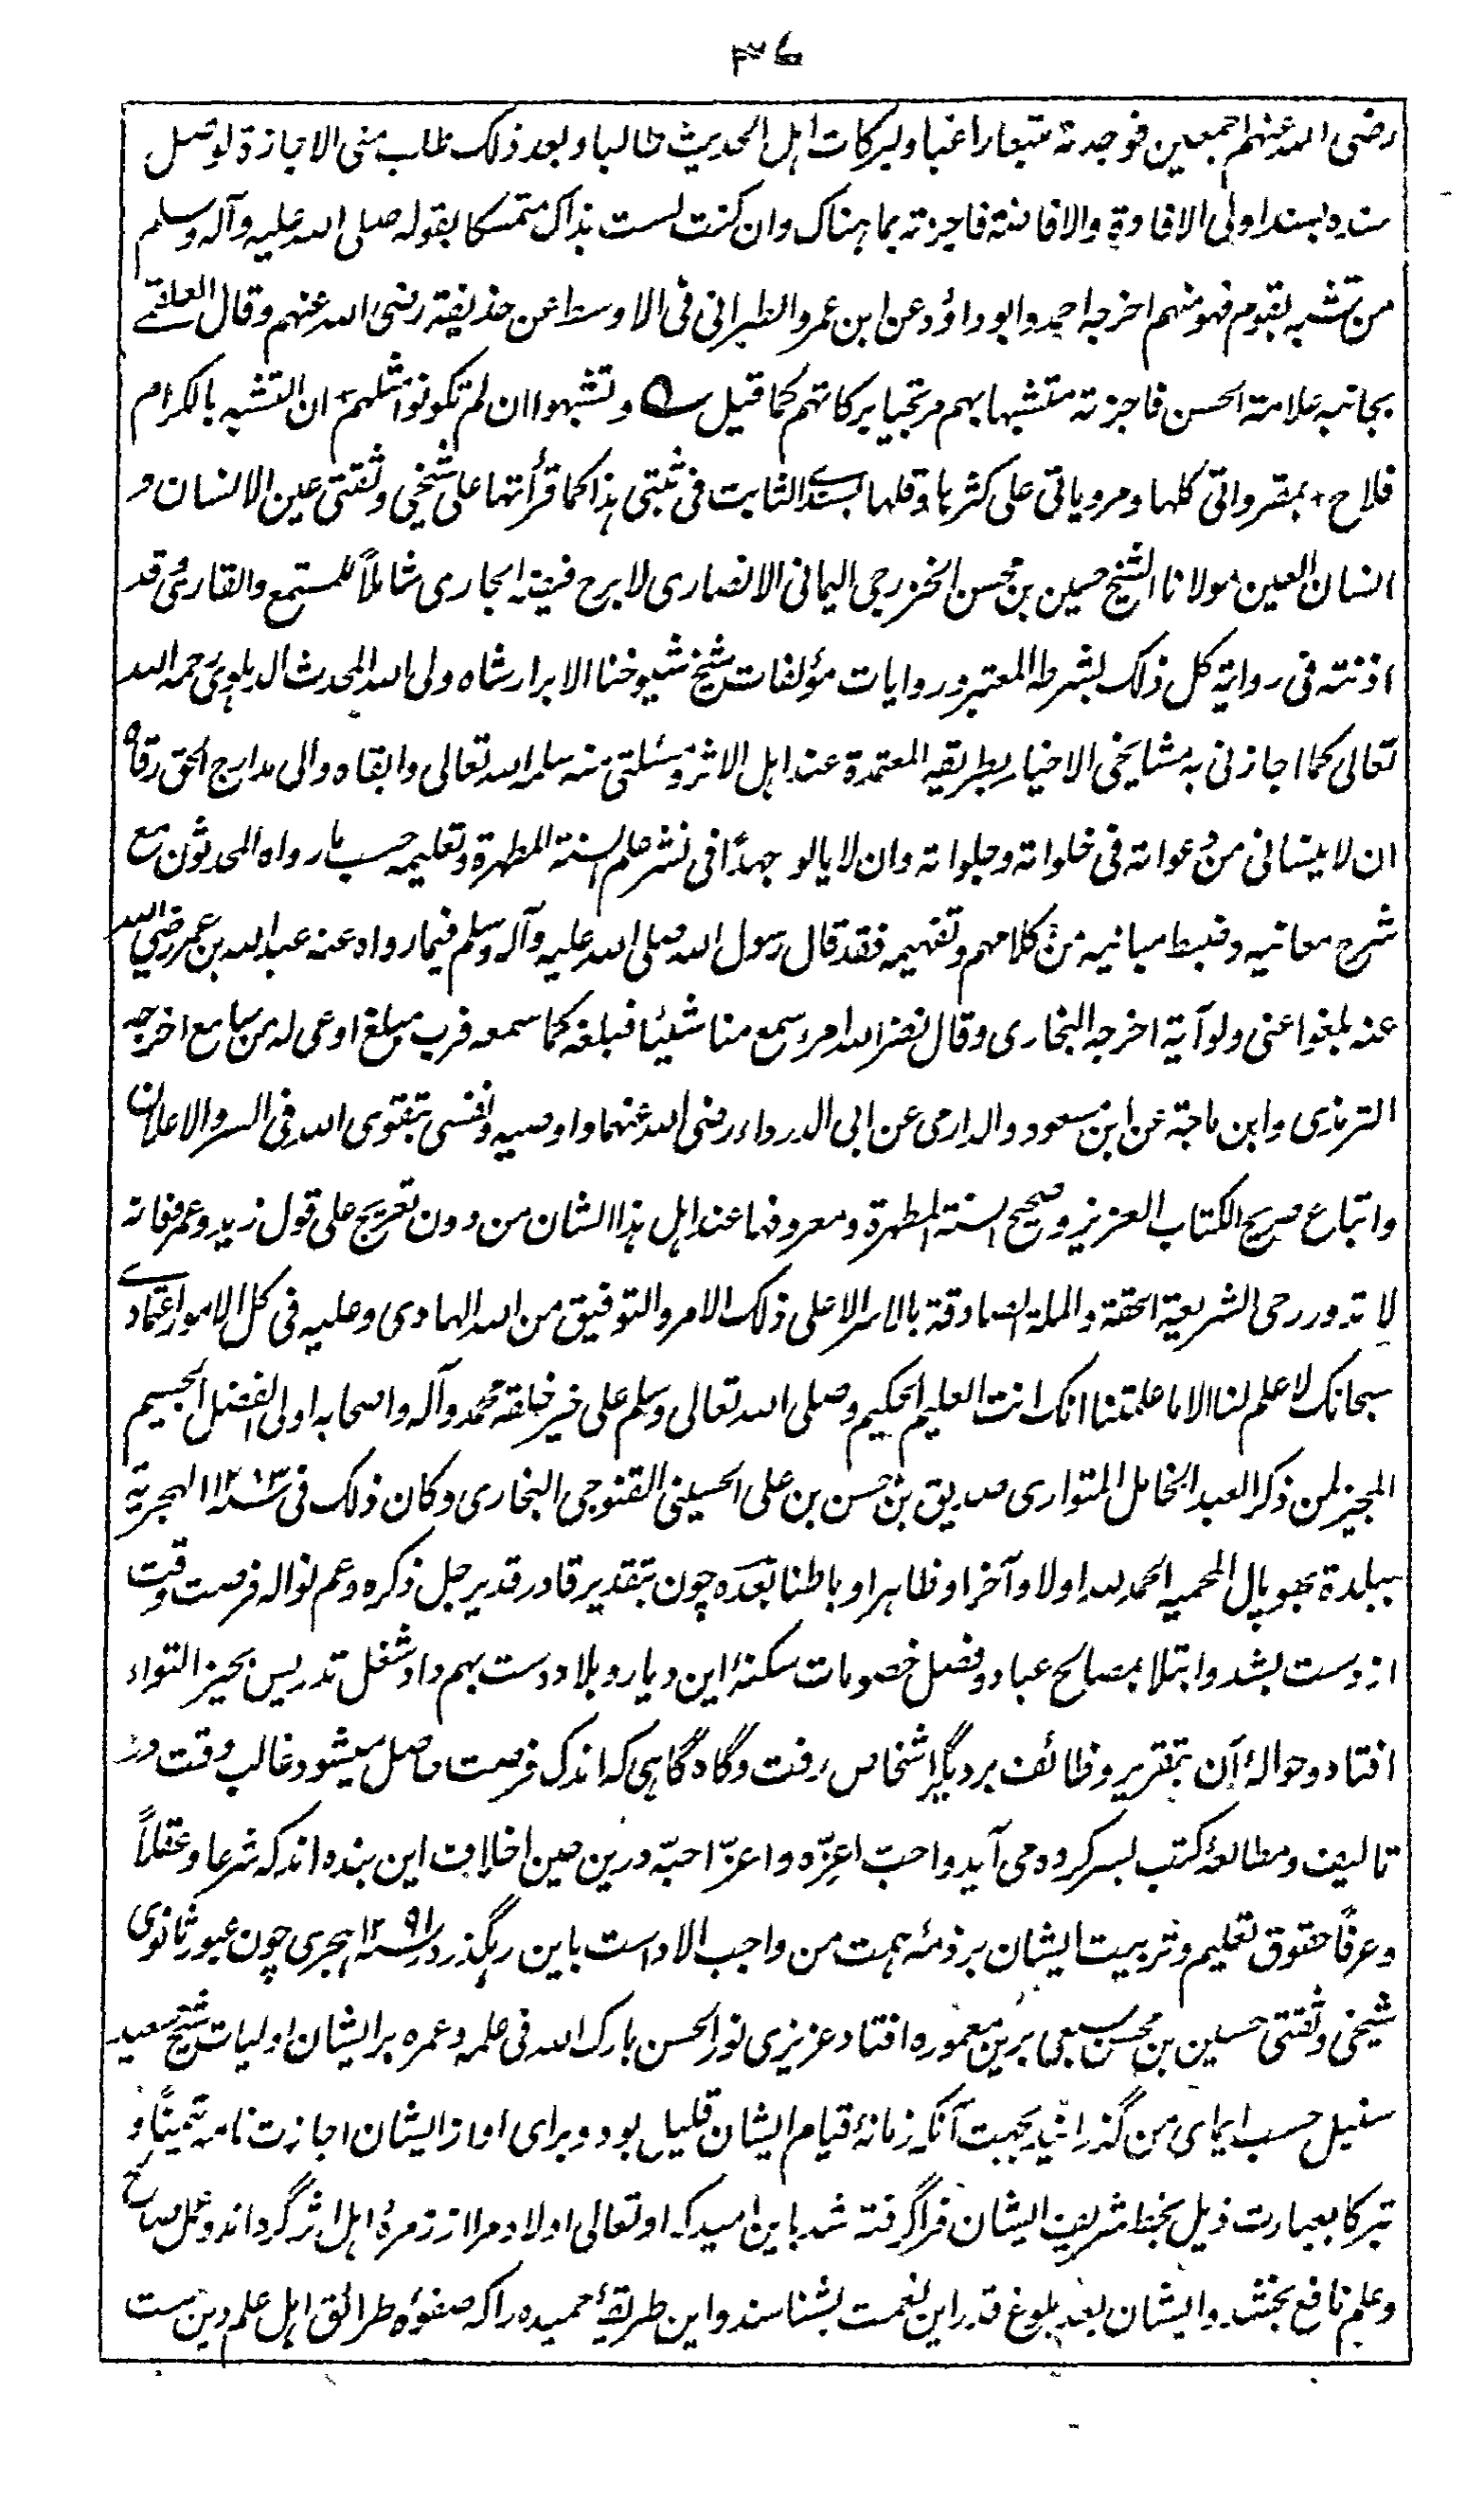 ۳۶
رضی اللہ عنہم اجمعین فوجدتہ متبعا راغبا ولبرکات اہل الحدیث طالبا وبعد ذلک طلب منی الاجازۃ لوصل
سندہ بسند اولی الافادۃ والافاضۃ فاجزتہ بما ہناک وان کنت لست بذاک متمسکا بقولہ صلی اللہ علیہ وآلہ وسلم
من تشبہ بقوم فہو منہم اخرجہ احمد وابو داؤد عن ابن عمر والطبرانی فی الاوسط عن حذیفۃ رضی اللہ عنہم وقال العلقمے
بجانبہ علامۃ الحسن فاجزتہ متشبہا بہم مرتجیا برکاتہم کما قیل ے وتشبہوا ان لم تکونوا مثلہم + ان التشبہ بالکرام
فلاح + بمقرواتی کلہا ومرویاتی علی کثرہا وقلہا بسندے الثابت فی ثبتی ہذا کما قرأتہا علی شیخی وثقتی عین الانسان و
انسان العین مولانا الشیخ حسین بن محسن الخزرجی الیمانی الانصاری لا برح فیضہ الجاری شاملاً للمستمع والقارئ وقد
اذنتہ فی روایۃ کل ذلک بشرطہ المعتبر وروایات مؤلفات شیخ شیوخنا الابرار شاہ ولی اللہ المحدث الدہلوی رحمہ اللہ
تعالی کما اجازنی بہ مشایخی الاخیار بطریقہ المعتمدۃ عند اہل الاثر ومسئلتی منہ سلمہ اللہ تعالی وابقاہ والی مدارج الحق رقاہ
ان لا ینسانی من دعواتہ فی خلواتہ وجلواتہ وان لا یالو جہدًا فی نشر علم السنۃ المطہرۃ وتعلیمہ حسب ما رواہ المحدثون مع
شرح معانیہ وضبط مبانیہ من کلامہم وتفہیمہ فقد قال رسول اللہ صلی اللہ علیہ وآلہ وسلم فیما رواہ عنہ عبد اللہ بن عمر رضی اللہ
عنہ بلغوا عنی ولو آیۃ اخرجہ البخاری وقال نضر اللہ امرو سمع منا شیئا فبلغہ کما سمعہ فرب مبلغ اوعی لہ من سامع اخرجہ
الترمذی وابن ماجۃ عن ابن مسعود والدارمی عن ابی الدرداء رضی اللہ عنہما واوصیہ ونفسی بتقوی اللہ فی السر والاعلان
واتباع صریح الکتاب العزیز وصحیح السنۃ المطہرۃ ومعروفہا عند اہل ہذا الشان من دون تعریج علی قول زید وعمرو فانہ
لا تدور رحی الشریعۃ الحقۃ والملۃ الصادقۃ بالاسر الا علی ذلک الامر والتوفیق من اللہ الہادی وعلیہ فی کل الامور اعتمادے
سبحانک لا علم لنا الا ما علمتنا انک انت العلیم الحکیم وصلی اللہ تعالی وسلم علی خیر خلقہ محمد وآلہ واصحابہ اولی الفضل الجسیم
المجیز لمن ذکر العبد الخامل المتواری صدیق بن حسن بن علی الحسینی القنوجی البخاری وکان ذلک فی سنہ الہجریۃ
ببلدۃ بھوپال المحمیہ الحمد للہ اولا وآخرا وظاہرا وباطنا بعدہ چون بتقدیر قادر قدیر جل ذکرہ وعم نوالہ فرصت وقت
از دست بشد وابتلا بمصالح عباد وفصل خصومات سکنۂ این دیار وبلاد دست بہم داد شغل تدریس بحیز التواء
افتاد وحوالۂ آن بتقریر وظائف بر دیگر اشخاص رفت وگاہ گاہی کہ اندک فرصت حاصل میشود غالب وقت در
تالیف ومطالعۂ کتب بسر کردہ می آید واحبّ اعزّہ واعزّ احبّہ درین حین اخلاف این بندہ اند کہ شرعا وعقلاً
وعرفًا حقوق تعلیم وتربیت ایشان بر ذمۂ ہمت من واجب الاداست باین رہگذر در سنہ ۱۲۹۱ ہجری چون عبور ثانوی
شیخی وثقتی حسین بن محسن سبعی برین معمورہ افتاد عزیزی نور الحسن بارک اللہ فی علمہ وعمرہ بر ایشان اولیات شیخ سعید
سنبل حسب ایمای من گذرانید بجہت آنکہ زمانۂ قیام ایشان قلیل بود وبرای او از ایشان اجازت نامہ تیمنًا و
تبرکا بعبارت ذیل بخط شریف ایشان فراگرفتہ شد باین امید کہ او تعالی اولاد مرا از زمرۂ اہل اثر گرداند وعمل صالح
وعلم نافع بخشد وایشان بعد بلوغ قدر این نعمت بشناسند واین طریقۂ حمیدہ را کہ صفوۂ طرائق اہل علم دین ست